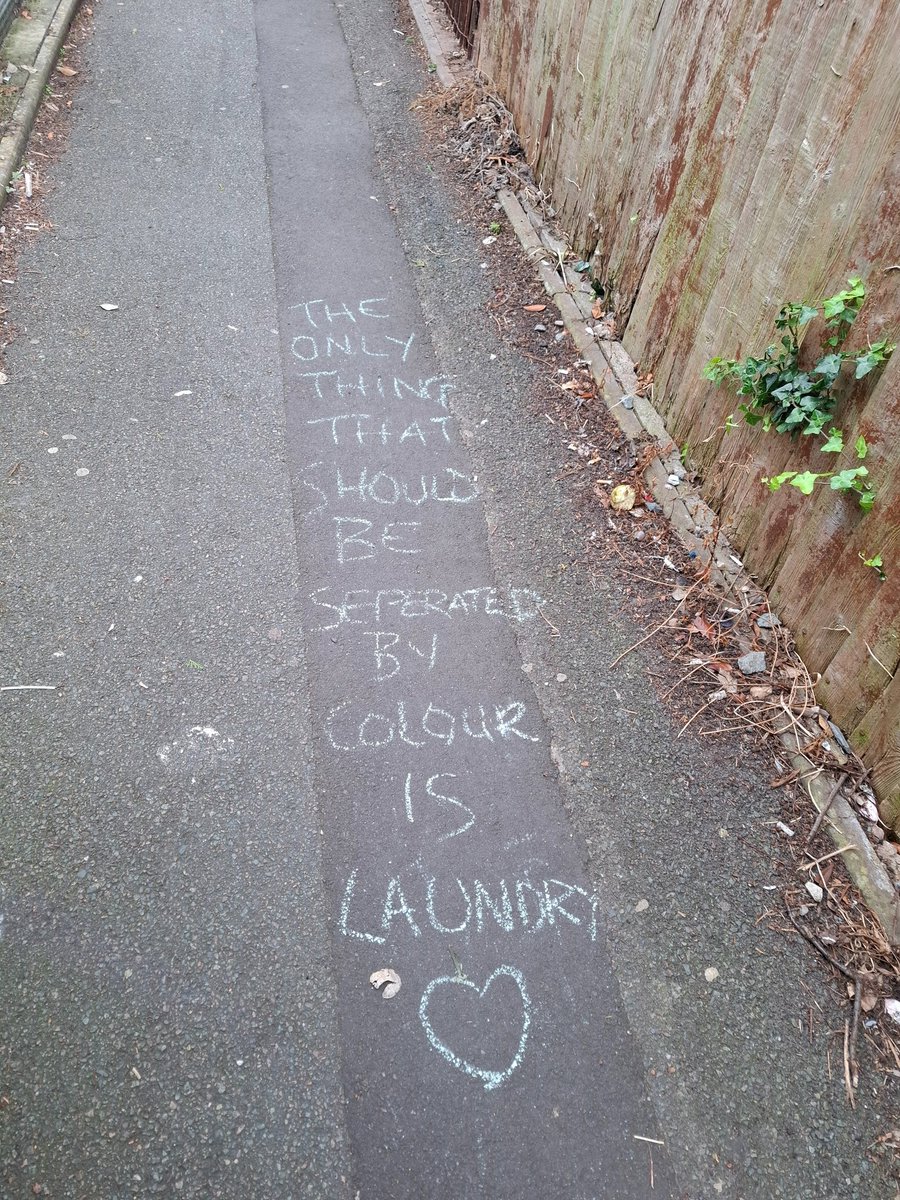 THE
ONLY
THING
THAT
SHOULD
BE
SEPERATED
BY
COLOUR
IS
LAUNDRY